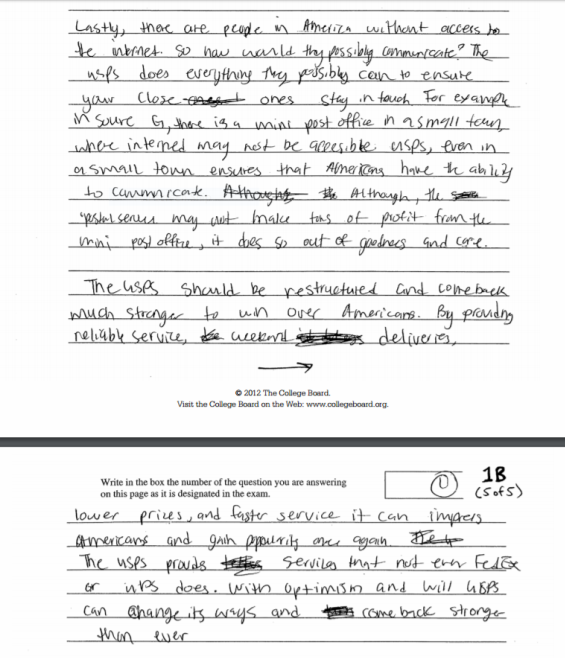 Lastly, there are people in America without access to
the internet. So how would they possibly communicate? The
usps does everything they possibly can to ensure
your close ones stay in touch For example
in source G, there is a mini post office in a small town
where interned may not be accesible. USPS, even in
a small town ensures that Americans have the ability
to communicate. Athough the Although, the
postal serves may not make tons of profit from the
mini post office, it does so out of goodness and care.
The USPS should be restructured and comeback
much stronger to win over Americans. By providing
reliable service, weekend deliveries,
© 2012 The College Board.
Visit the College Board on the Web: www.collegeboard.org.
Write in the box the number of the question you are answering
on this page as it is designated in the exam.
1
1B
(5 of 5)
lower prices, and faster service it can impress
Americans and gain popularity once again The
The USPS provids services that not even FedEx
or UPS does. With optimism and will USPS
can change its ways and come back stronger
than ever